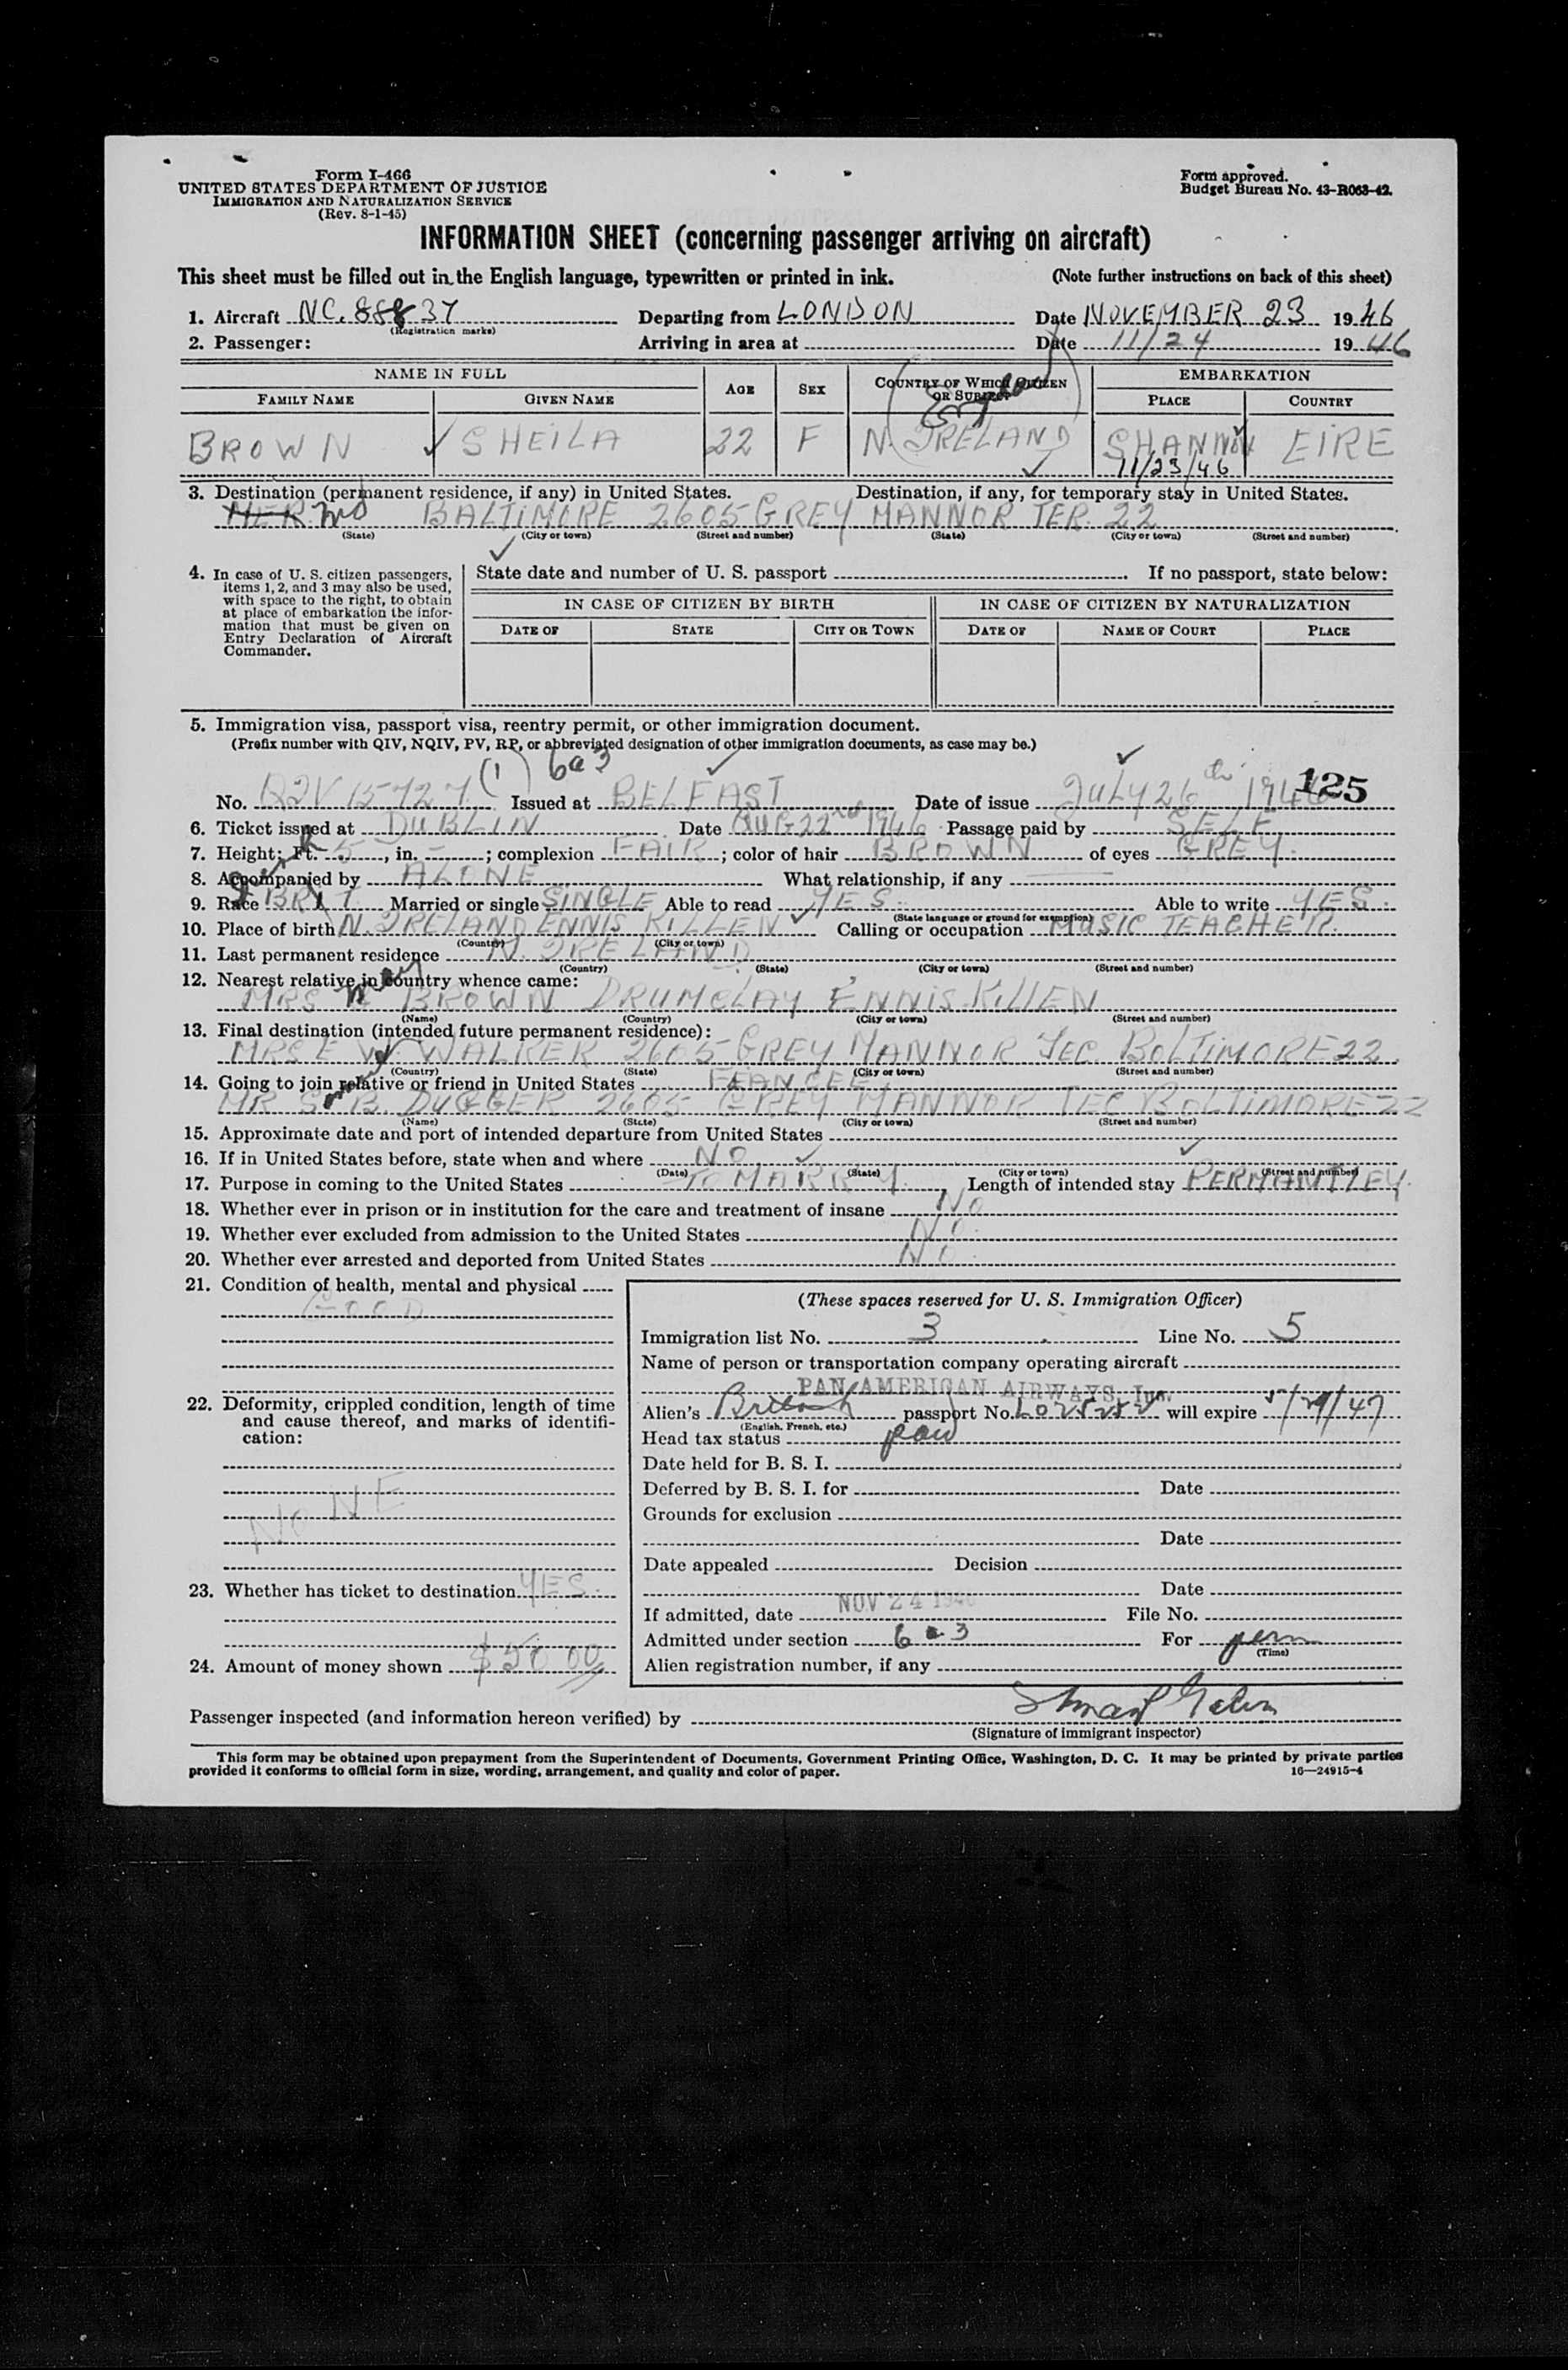 Form I-466
UNITED STATES DEPARTMENT OF JUSTICE
IMMIGRATION AND NATURALIZATION SERVICE
(Rev. 8-1-45)
Form approved.
Budget Bureau No. 43-R063-42.
INFORMATION SHEET (concerning passenger arriving on aircraft)
This sheet must be filled out in the English language, typewritten or printed in ink. (Note further instructions on back of this sheet)
1. Aircraft NC. 88837 Departing from LONDON Date NOVEMBER 23 1946
(Registration marks)
2. Passenger: Arriving in area at Date 11/24 1946
NAME IN FULL AGE SEX COUNTRY OF WHICH CITIZEN OR SUBJECT EMBARKATION
FAMILY NAME GIVEN NAME PLACE COUNTRY
BROWN SHEILA 22 F N. IRELAND SHANNON EIRE
11/23/46
3. Destination (permanent residence, if any) in United States. Destination, if any, for temporary stay in United States.
Md BALTIMORE 2605 GREY MANNOR TER. 22
(State) (City or town) (Street and number) (State) (City or town) (Street and number)
4. In case of U. S. citizen passengers, items 1, 2, and 3 may also be used, with space to the right, to obtain at place of embarkation the information that must be given on Entry Declaration of Aircraft Commander.
State date and number of U. S. passport If no passport, state below:
IN CASE OF CITIZEN BY BIRTH IN CASE OF CITIZEN BY NATURALIZATION
DATE OF STATE CITY OR TOWN DATE OF NAME OF COURT PLACE
5. Immigration visa, passport visa, reentry permit, or other immigration document.
(Prefix number with QIV, NQIV, PV, RP, or abbreviated designation of other immigration documents, as case may be.)
(1) 6a3
No. Issued at BELFAST Date of issue JULY 26th 1946 125
6. Ticket issued at DUBLIN Date AUG 22nd 1946 Passage paid by SELF
7. Height: Ft. 5, in. - ; complexion FAIR ; color of hair BROWN of eyes GREY.
8. Accompanied by ALONE What relationship, if any
9. Race BRIT Married or single SINGLE Able to read YES Able to write YES
(State language or ground for exemption)
10. Place of birth N. IRELAND ENNISKILLEN Calling or occupation MUSIC TEACHER.
(Country) (City or town)
11. Last permanent residence N. IRELAND
(Country) (State) (City or town) (Street and number)
12. Nearest relative in country whence came:
MRS BROWN DRUMCLAY ENNISKILLEN
(Name) (Country) (City or town) (Street and number)
13. Final destination (intended future permanent residence):
MRS E WALKER 2605 GREY MANNOR TEC. BOLTIMORE 22.
(Country) (State) (City or town) (Street and number)
14. Going to join relative or friend in United States FEANCEE
MR S. B. DUGGER 2605 GREY MANNOR TEC BOLTIMORE 22
(Name) (State) (City or town) (Street and number)
15. Approximate date and port of intended departure from United States
16. If in United States before, state when and where NO
(Date) (State) (City or town) (Street and number)
17. Purpose in coming to the United States TO MARRY. Length of intended stay PERMANTLEY.
18. Whether ever in prison or in institution for the care and treatment of insane NO
19. Whether ever excluded from admission to the United States NO
20. Whether ever arrested and deported from United States NO
21. Condition of health, mental and physical
GOOD
22. Deformity, crippled condition, length of time and cause thereof, and marks of identification:
NONE
23. Whether has ticket to destination YES.
24. Amount of money shown $50 00
(These spaces reserved for U. S. Immigration Officer)
Immigration list No. 3 Line No. 5
Name of person or transportation company operating aircraft
PAN AMERICAN AIRWAYS, Inc.
Alien's British passport No. will expire 5/29/47
(English, French, etc.)
Head tax status paid
Date held for B. S. I.
Deferred by B. S. I. for Date
Grounds for exclusion
Date
Date appealed Decision
Date
If admitted, date NOV 24 1946 File No.
Admitted under section 6a3 For perm
(Time)
Alien registration number, if any
Passenger inspected (and information hereon verified) by
(Signature of immigrant inspector)
This form may be obtained upon prepayment from the Superintendent of Documents, Government Printing Office, Washington, D. C. It may be printed by private parties
provided it conforms to official form in size, wording, arrangement, and quality and color of paper. 16—24915-4